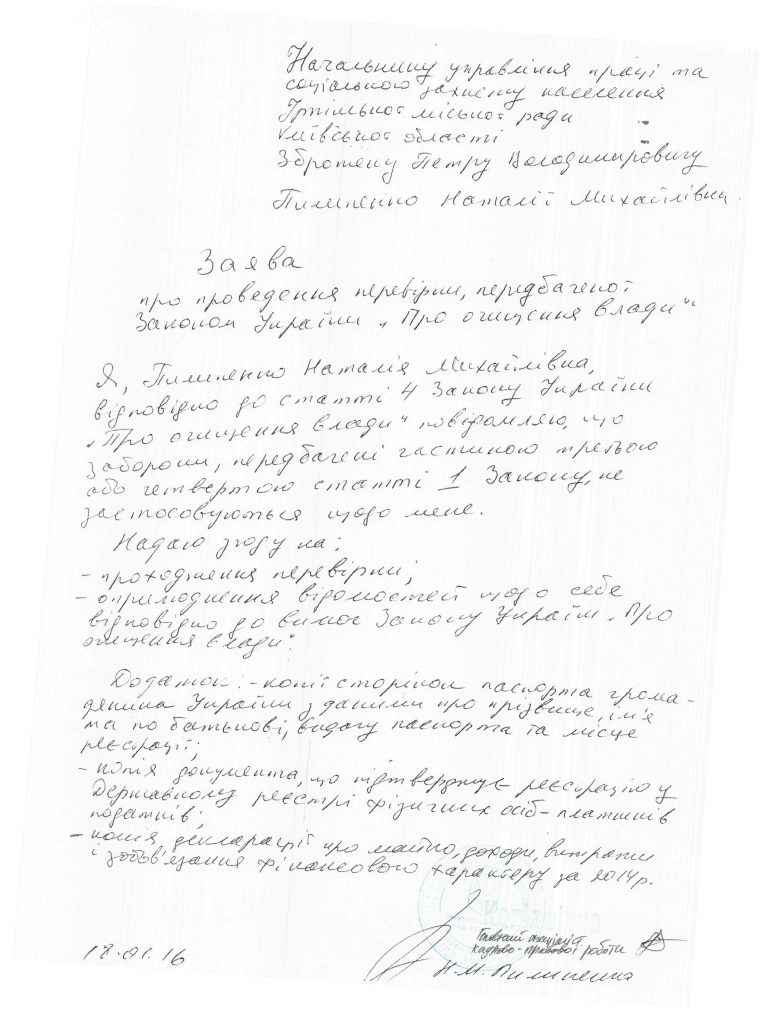 Начальнику управління праці та
соціального захисту населення
Ірпінської міської ради
Київської області
Зброжеку Петру Володимировичу
Пилипенко Наталії Михайлівни
Заява
про проведення перевірки, передбаченої
Законом України „Про очищення влади“
Я, Пилипенко Наталія Михайлівна,
відповідно до статті 4 Закону України
„Про очищення влади“ повідомляю, що
заборони, передбачені частиною третьою
або четвертою статті 1 Закону, не
застосовуються щодо мене.
Надаю згоду на:
- проходження перевірки;
- оприлюднення відомостей щодо себе
відповідно до вимог Закону України „Про
очищення влади“.
Додаток: - копії сторінок паспорта грома-
дянина України з даними про прізвище, ім'я
та по батькові, видачу паспорта та місце
реєстрації;
- копія документа, що підтверджує реєстрацію у
Державному реєстрі фізичних осіб - платників
податків;
- копія декларації про майно, доходи, витрати
і зобов'язання фінансового характеру за 2014 р.
Головний спеціаліст
кадрово-правової роботи
18.01.16
Н.М. Пилипенко